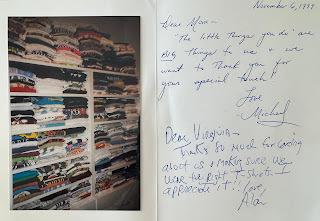 November 6, 1999
Dear Mom -
"The little things you do" are
BIG things to us & we
want to thank you for
your special touch!
Love
Michael
Dear Virginia -
Thanks so much for caring
about us & making sure we
wear the right T-shirts. I
appreciate it!!
Love,
Alan